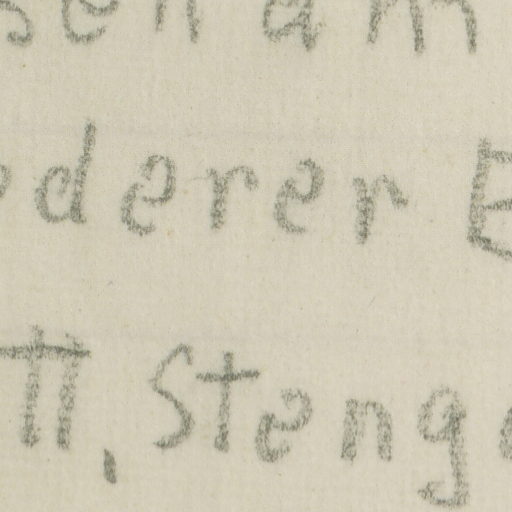 sen am
ederer E
tt, Steng